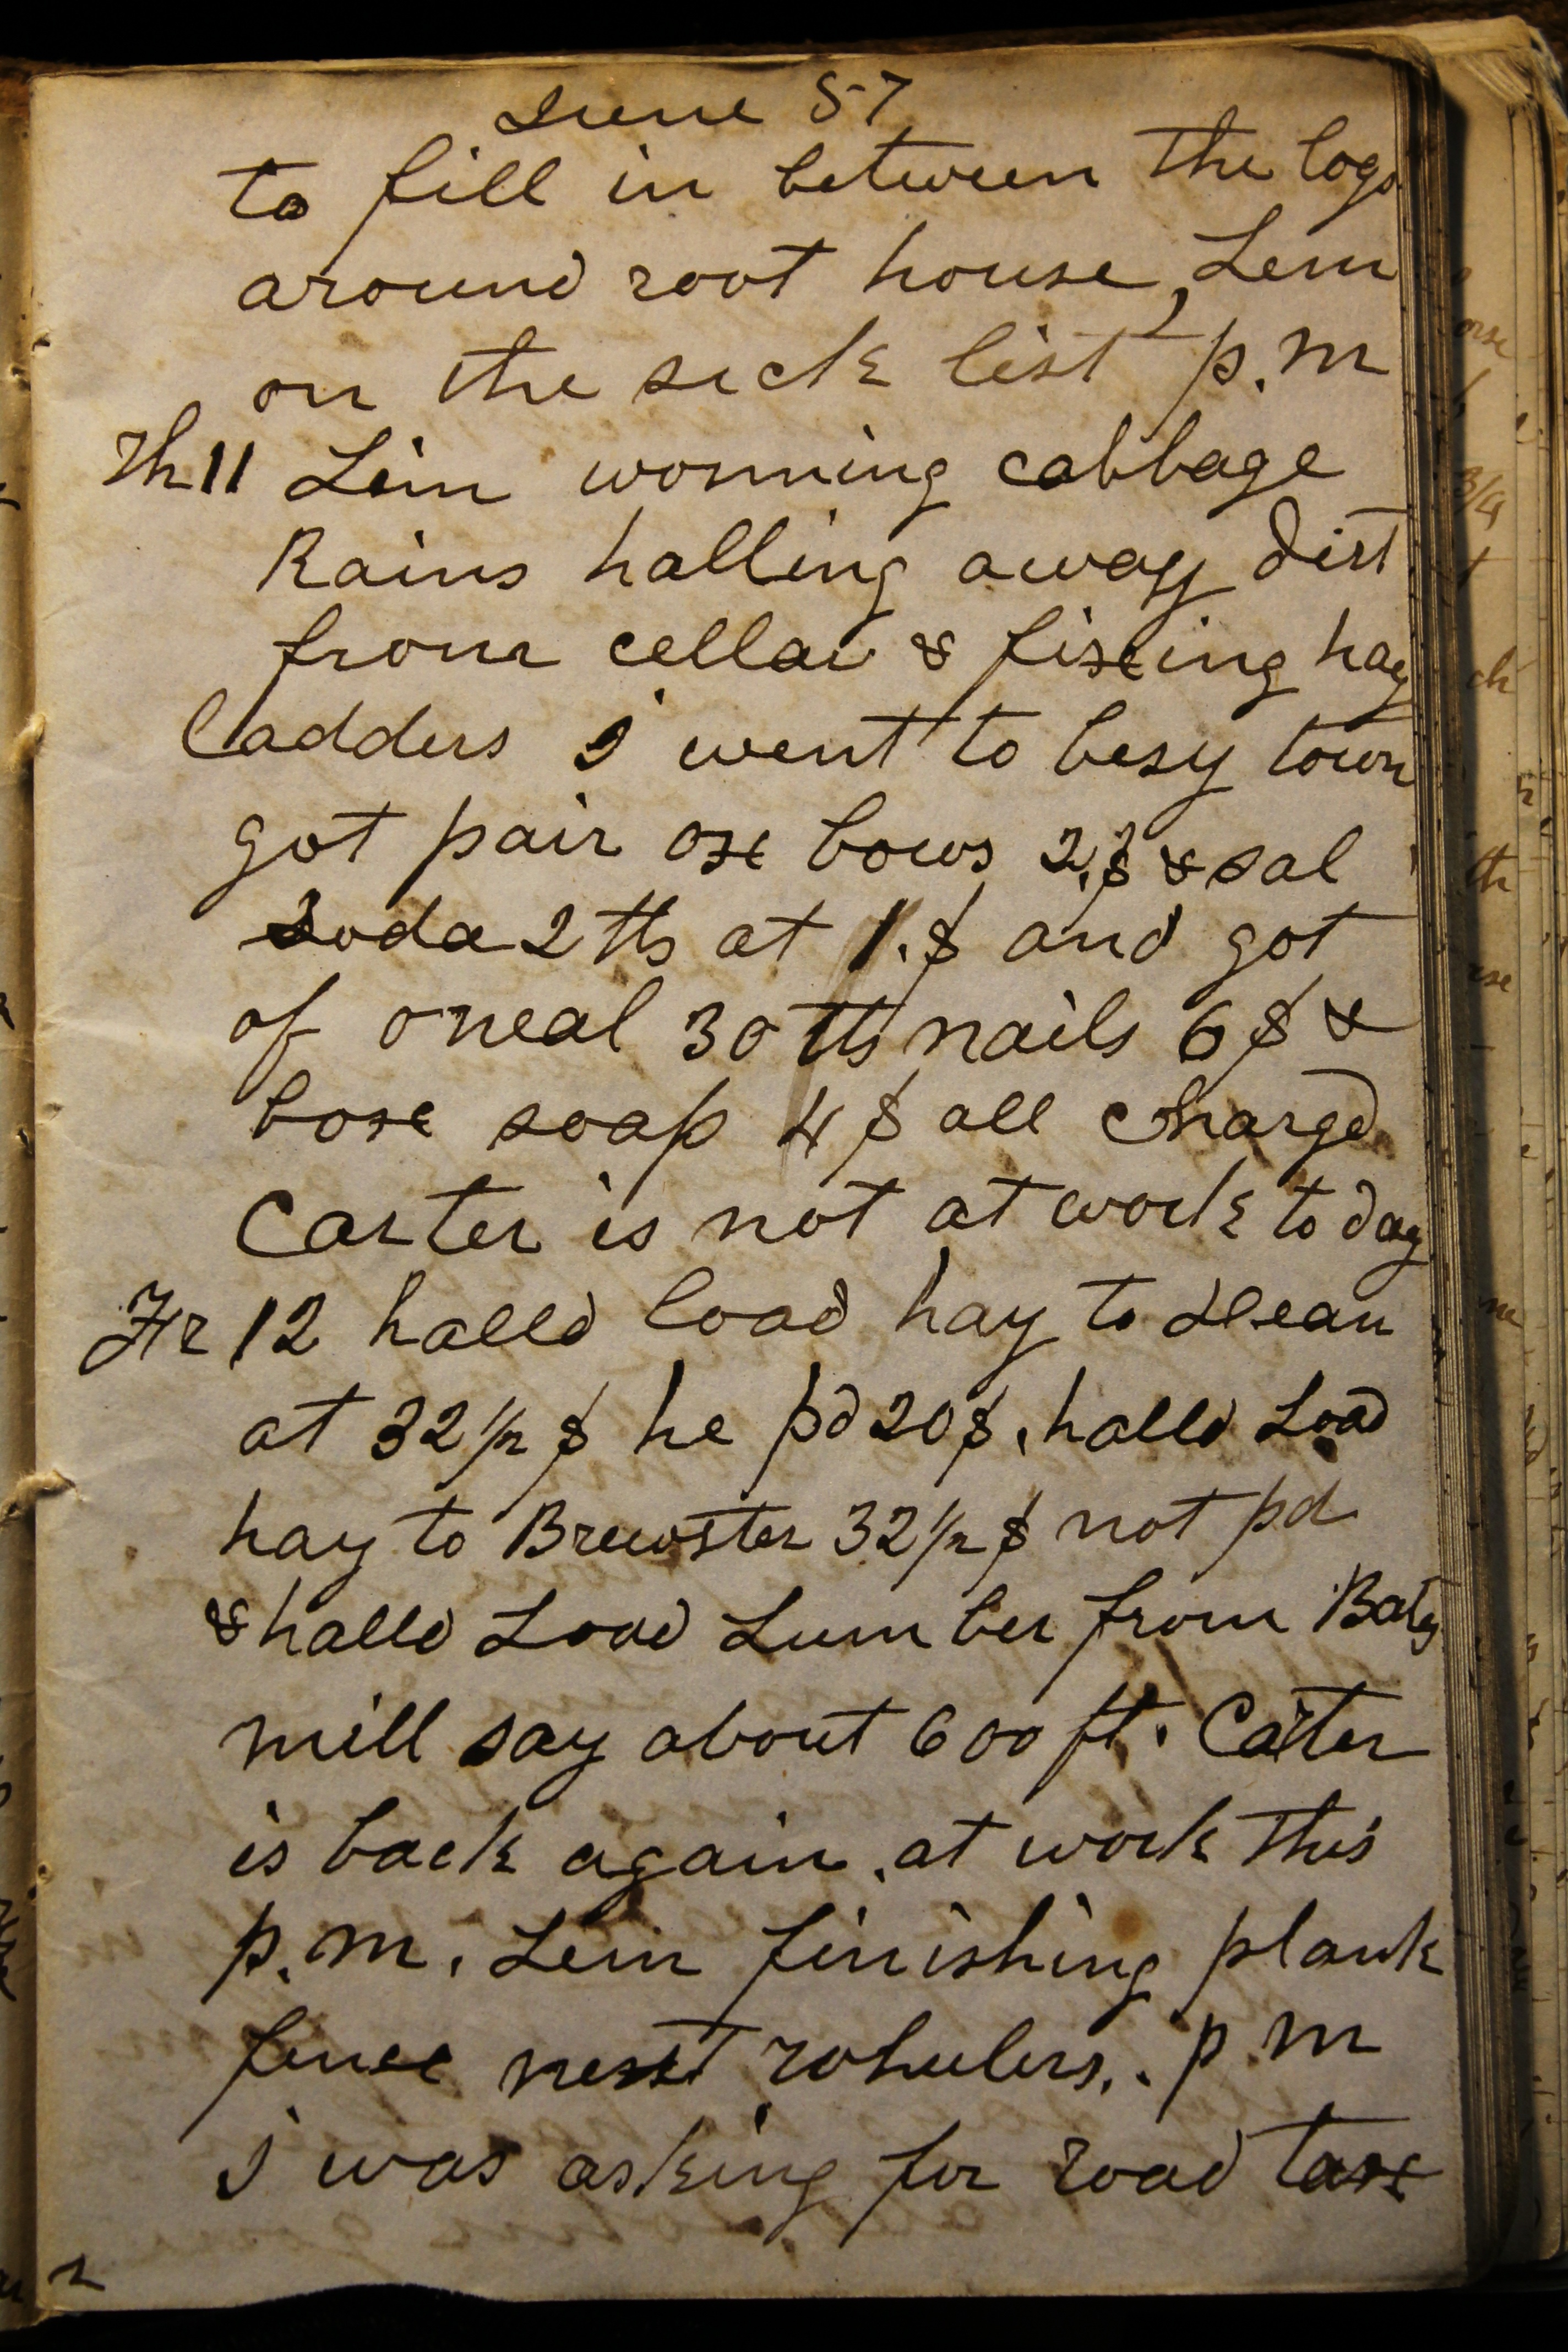 June 57
to fill in between the logs
around root house, Lem
on the sick list p.m
Th 11 Lem worming cabbage
Rains halling away dirt
from cellar & fixing hay
ladders I went to besy town
got pair ox bows 2.$ & sal
soda 2 lbs at 1.$ and got
of oneal 30 lbs nails 6$ &
box soap 4$ all chargd
Carter is not at work to day
Fr 12 halld load hay to Dean
at 32 1/2 $ he pd 20$. halld Load
hay to Brewster 32 1/2 $ not pd
& halld Load Lumber from Baty
mill say about 600 ft. Carter
is back again. at work this
p.m. Lem finishing plank
fence next wheelers.. p m
I was asking for road tax